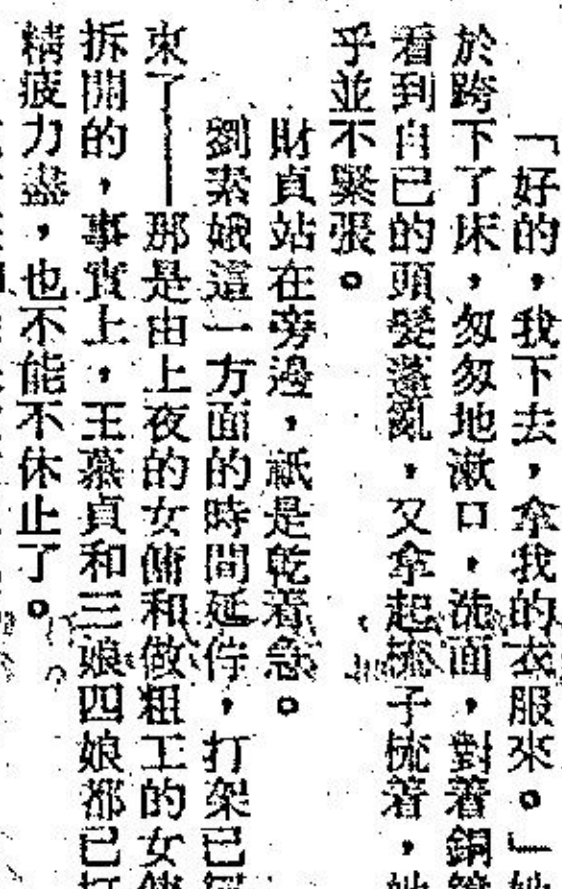 「好的,我下去,拿我的衣服來。」她
於跨下了床,匆匆地漱口,洗面,對着銅鏡
看到自已的頭髮蓬亂,又拿起梳子梳着,她
乎並不緊張。
財貞站在旁邊,祇是乾着急。
劉素娥這一方面的時間延佇,打架已經
束了——那是由上夜的女傭和做粗工的女傭
拆開的,事實上,王慕貞和三娘四娘都已打
精疲力盡,也不能不休止了。